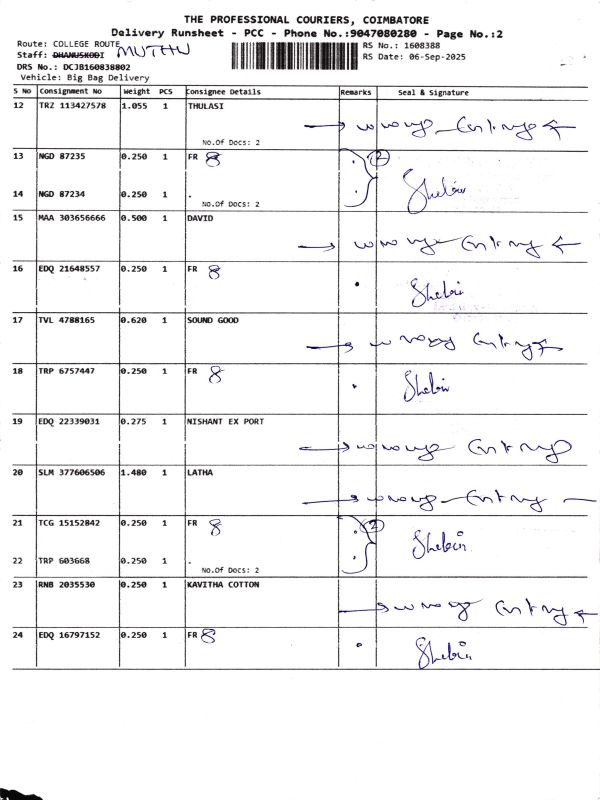 THE PROFESSIONAL COURIERS, COIMBATORE
Delivery Runsheet - PCC - Phone No.:9047080280 - Page No.:2
Route: COLLEGE ROUTE
Staff: DHANUSKODI MUTHU
DRS No.: DCJB160838802
Vehicle: Big Bag Delivery
RS No.: 1608388
RS Date: 06-Sep-2025
S No Consignment No Weight PCS Consignee Details Remarks Seal & Signature
12 TRZ 113427578 1.055 1 THULASI
→ wrong Entry ←
No.Of Docs: 2
13 NGD 87235 0.250 1 FR 8 2
14 NGD 87234 0.250 1 . Shebin
No.Of Docs: 2
15 MAA 303656666 0.500 1 DAVID
→ wrong Entry ←
16 EDQ 21648557 0.250 1 FR 8 Shebin
17 TVL 4788165 0.620 1 SOUND GOOD
→ wrong Entry ←
18 TRP 6757447 0.250 1 FR 8 Shebin
19 EDQ 22339031 0.275 1 NISHANT EX PORT
→ wrong Entry
20 SLM 377606506 1.480 1 LATHA
→ wrong Entry
21 TCG 15152842 0.250 1 FR 8 2 Shebin
22 TRP 603668 0.250 1 .
No.Of Docs: 2
23 RNB 2035530 0.250 1 KAVITHA COTTON
→ wrong Entry ←
24 EDQ 16797152 0.250 1 FR 8 Shebin